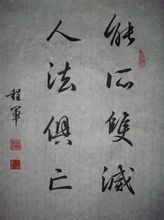 能所雙滅
人法俱亡
程軍